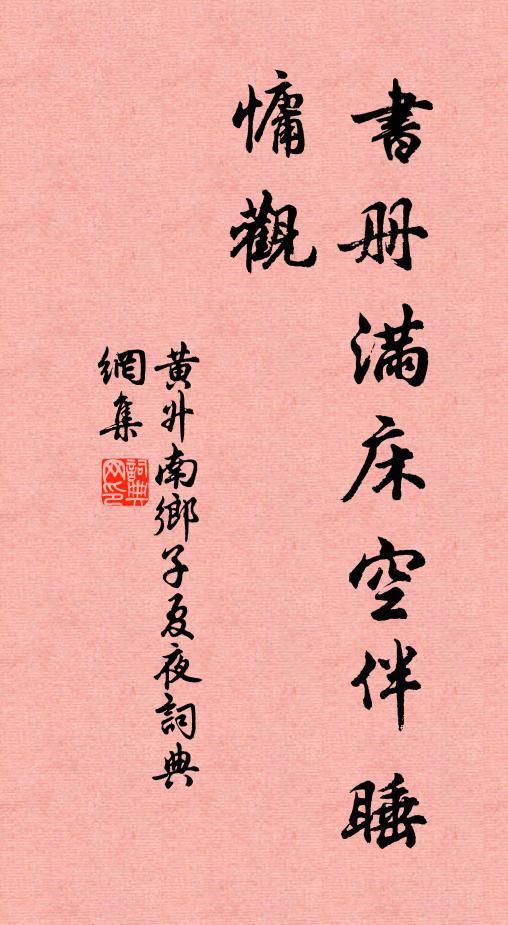 書册滿床空伴睡
慵觀
黄升南鄉子夏夜詞典
網集
詞典
网印